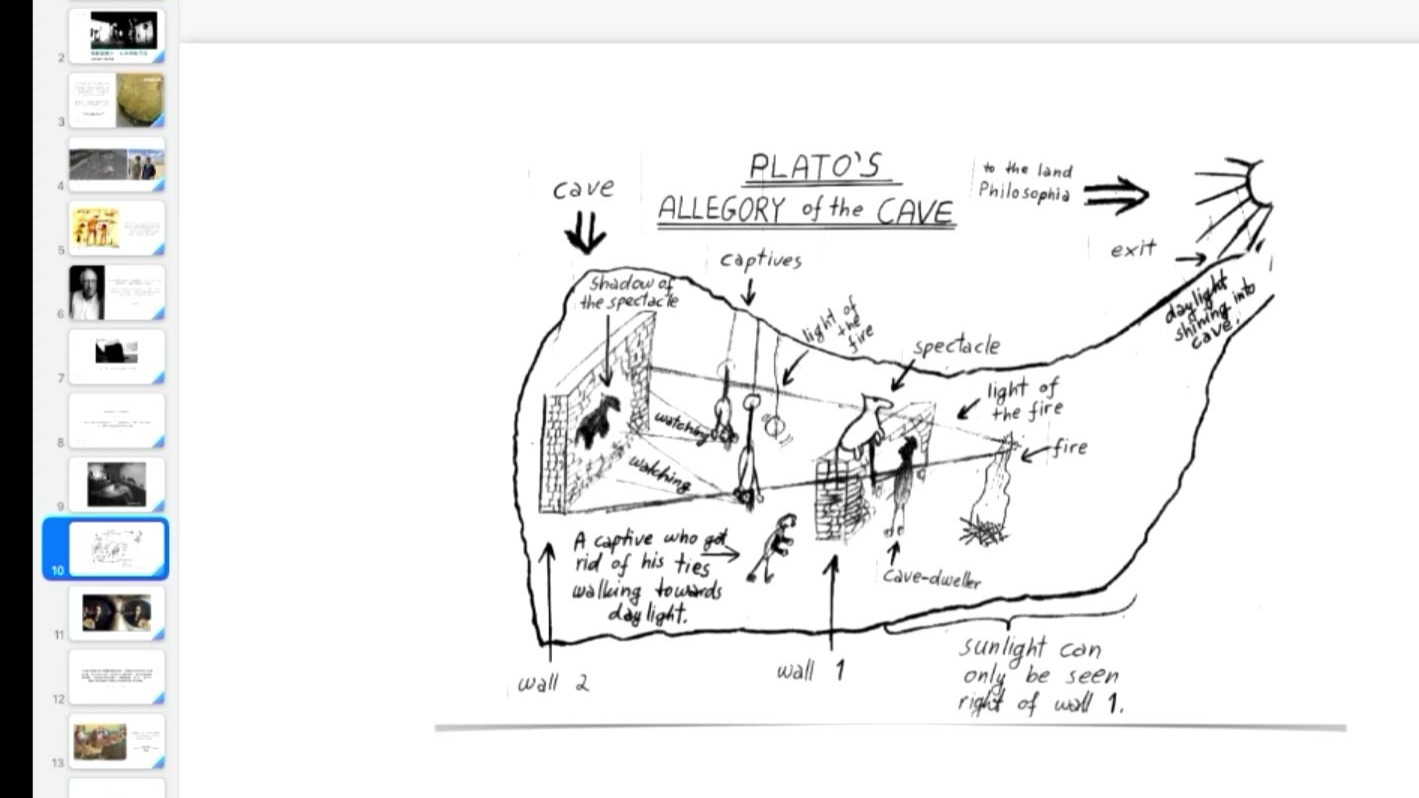 PLATO'S
ALLEGORY of the CAVE
to the land
Philosophia
cave
exit
captives
shadow of
the spectacle
daylight
shining into
cave.
light of
the
fire
spectacle
light of
the fire
fire
watching
watching
A captive who got
rid of his ties
walking towards
daylight.
cave-dweller
wall 2
wall 1
sunlight can
only be seen
right of wall 1.
2
3
4
5
6
7
8
9
10
11
12
13